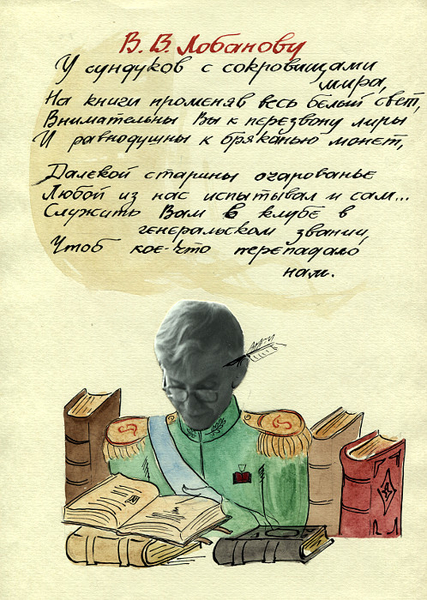 В. В. Лобанову
У сундуков с сокровищами
мира,
На книги променяв весь белый свет,
Внимательны Вы к перезвону лиры
И равнодушны к бряканью монет,
Далекой старины очарованье
Любой из нас испытывал и сам...
Служить Вам в клубе в
генеральском звании,
Чтоб кое-что перепадало
нам.